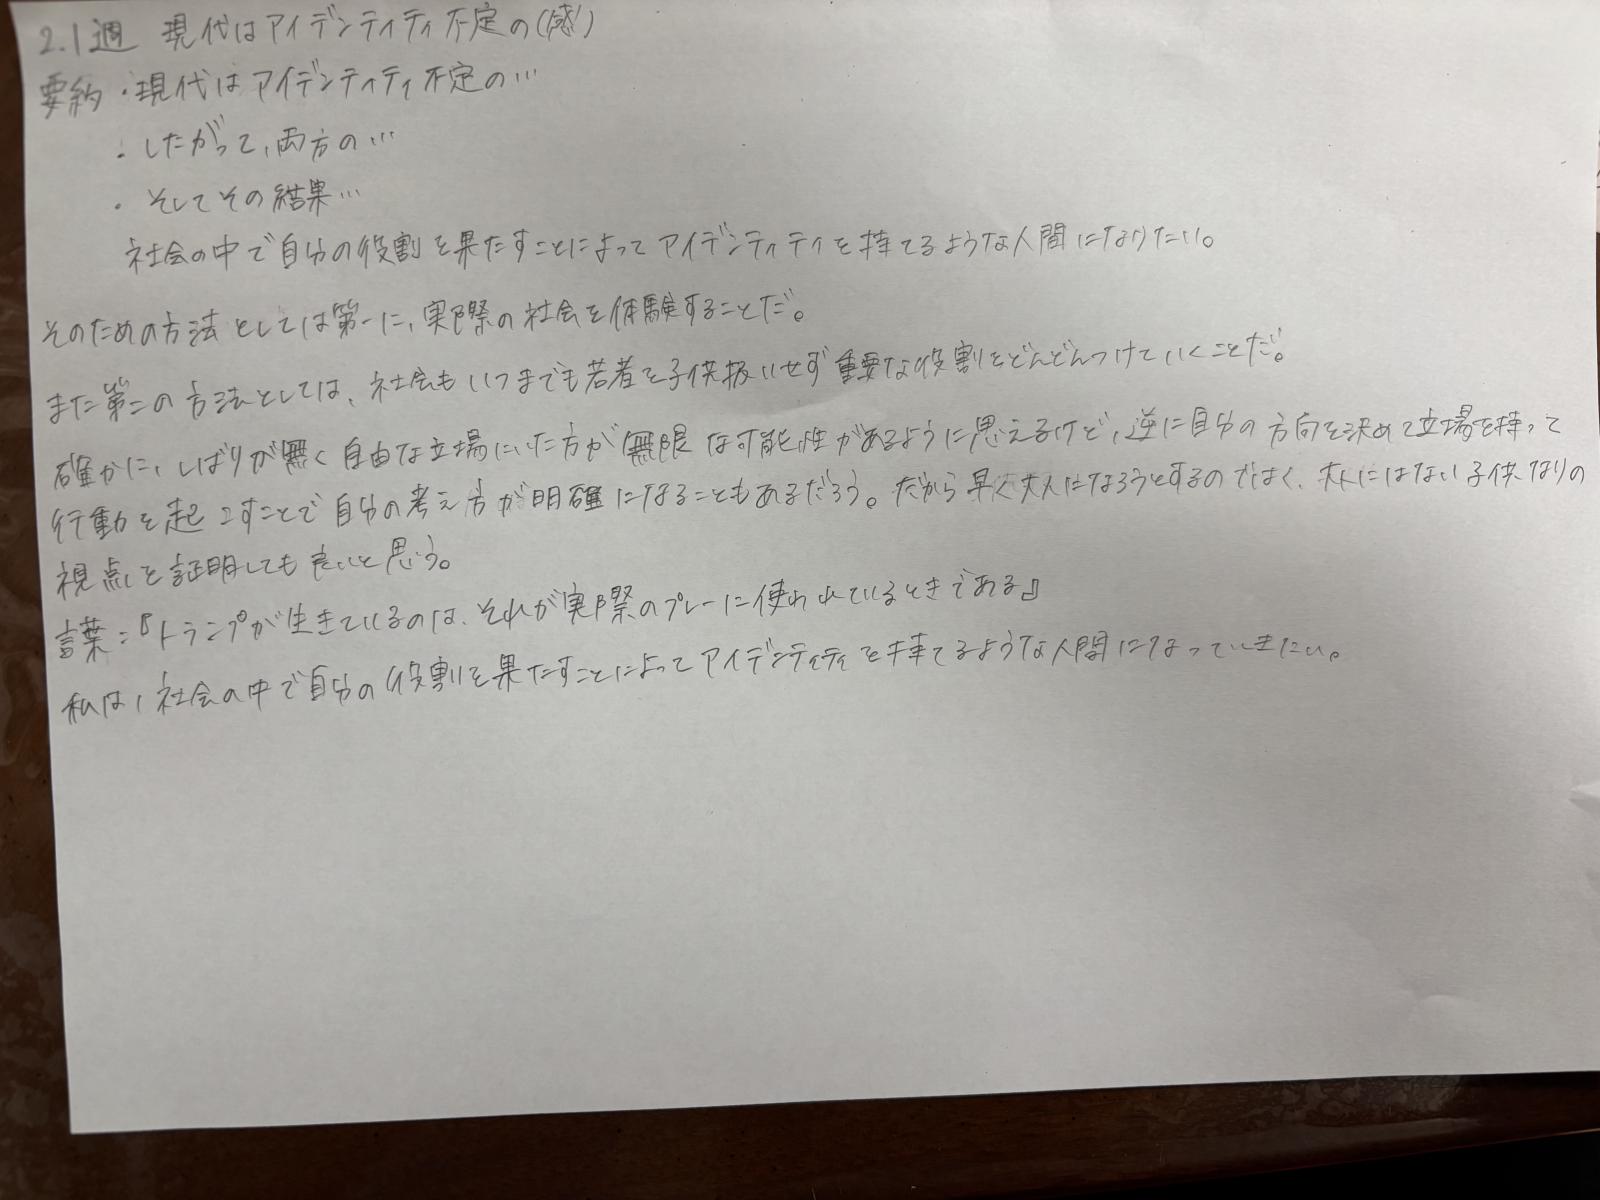 2.1週 現代はアイデンティティ不定の(感)
要約・現代はアイデンティティ不定の…
・したがって、両方の…
・そしてその結果…
社会の中で自分の役割を果たすことによってアイデンティティを持てるような人間になりたい。
そのための方法としては第一に、実際の社会を体験することだ。
また第二の方法としては、社会もいつまでも若者を子供扱いせず重要な役割をどんどんつけていくことだ。
確かに、しばりが無く自由な立場にいた方が無限な可能性があるように思えるけど、逆に自分の方向を決めて立場を持って
行動を起こすことで自分の考え方が明確になることもあるだろう。だから早く大人になろうとするのではなく、大人にはない子供なりの
視点を証明しても良いと思う。
言葉:『トランプが生きているのは、それが実際のプレーに使われているときである』
私は、社会の中で自分の役割を果たすことによってアイデンティティを持てるような人間になっていきたい。